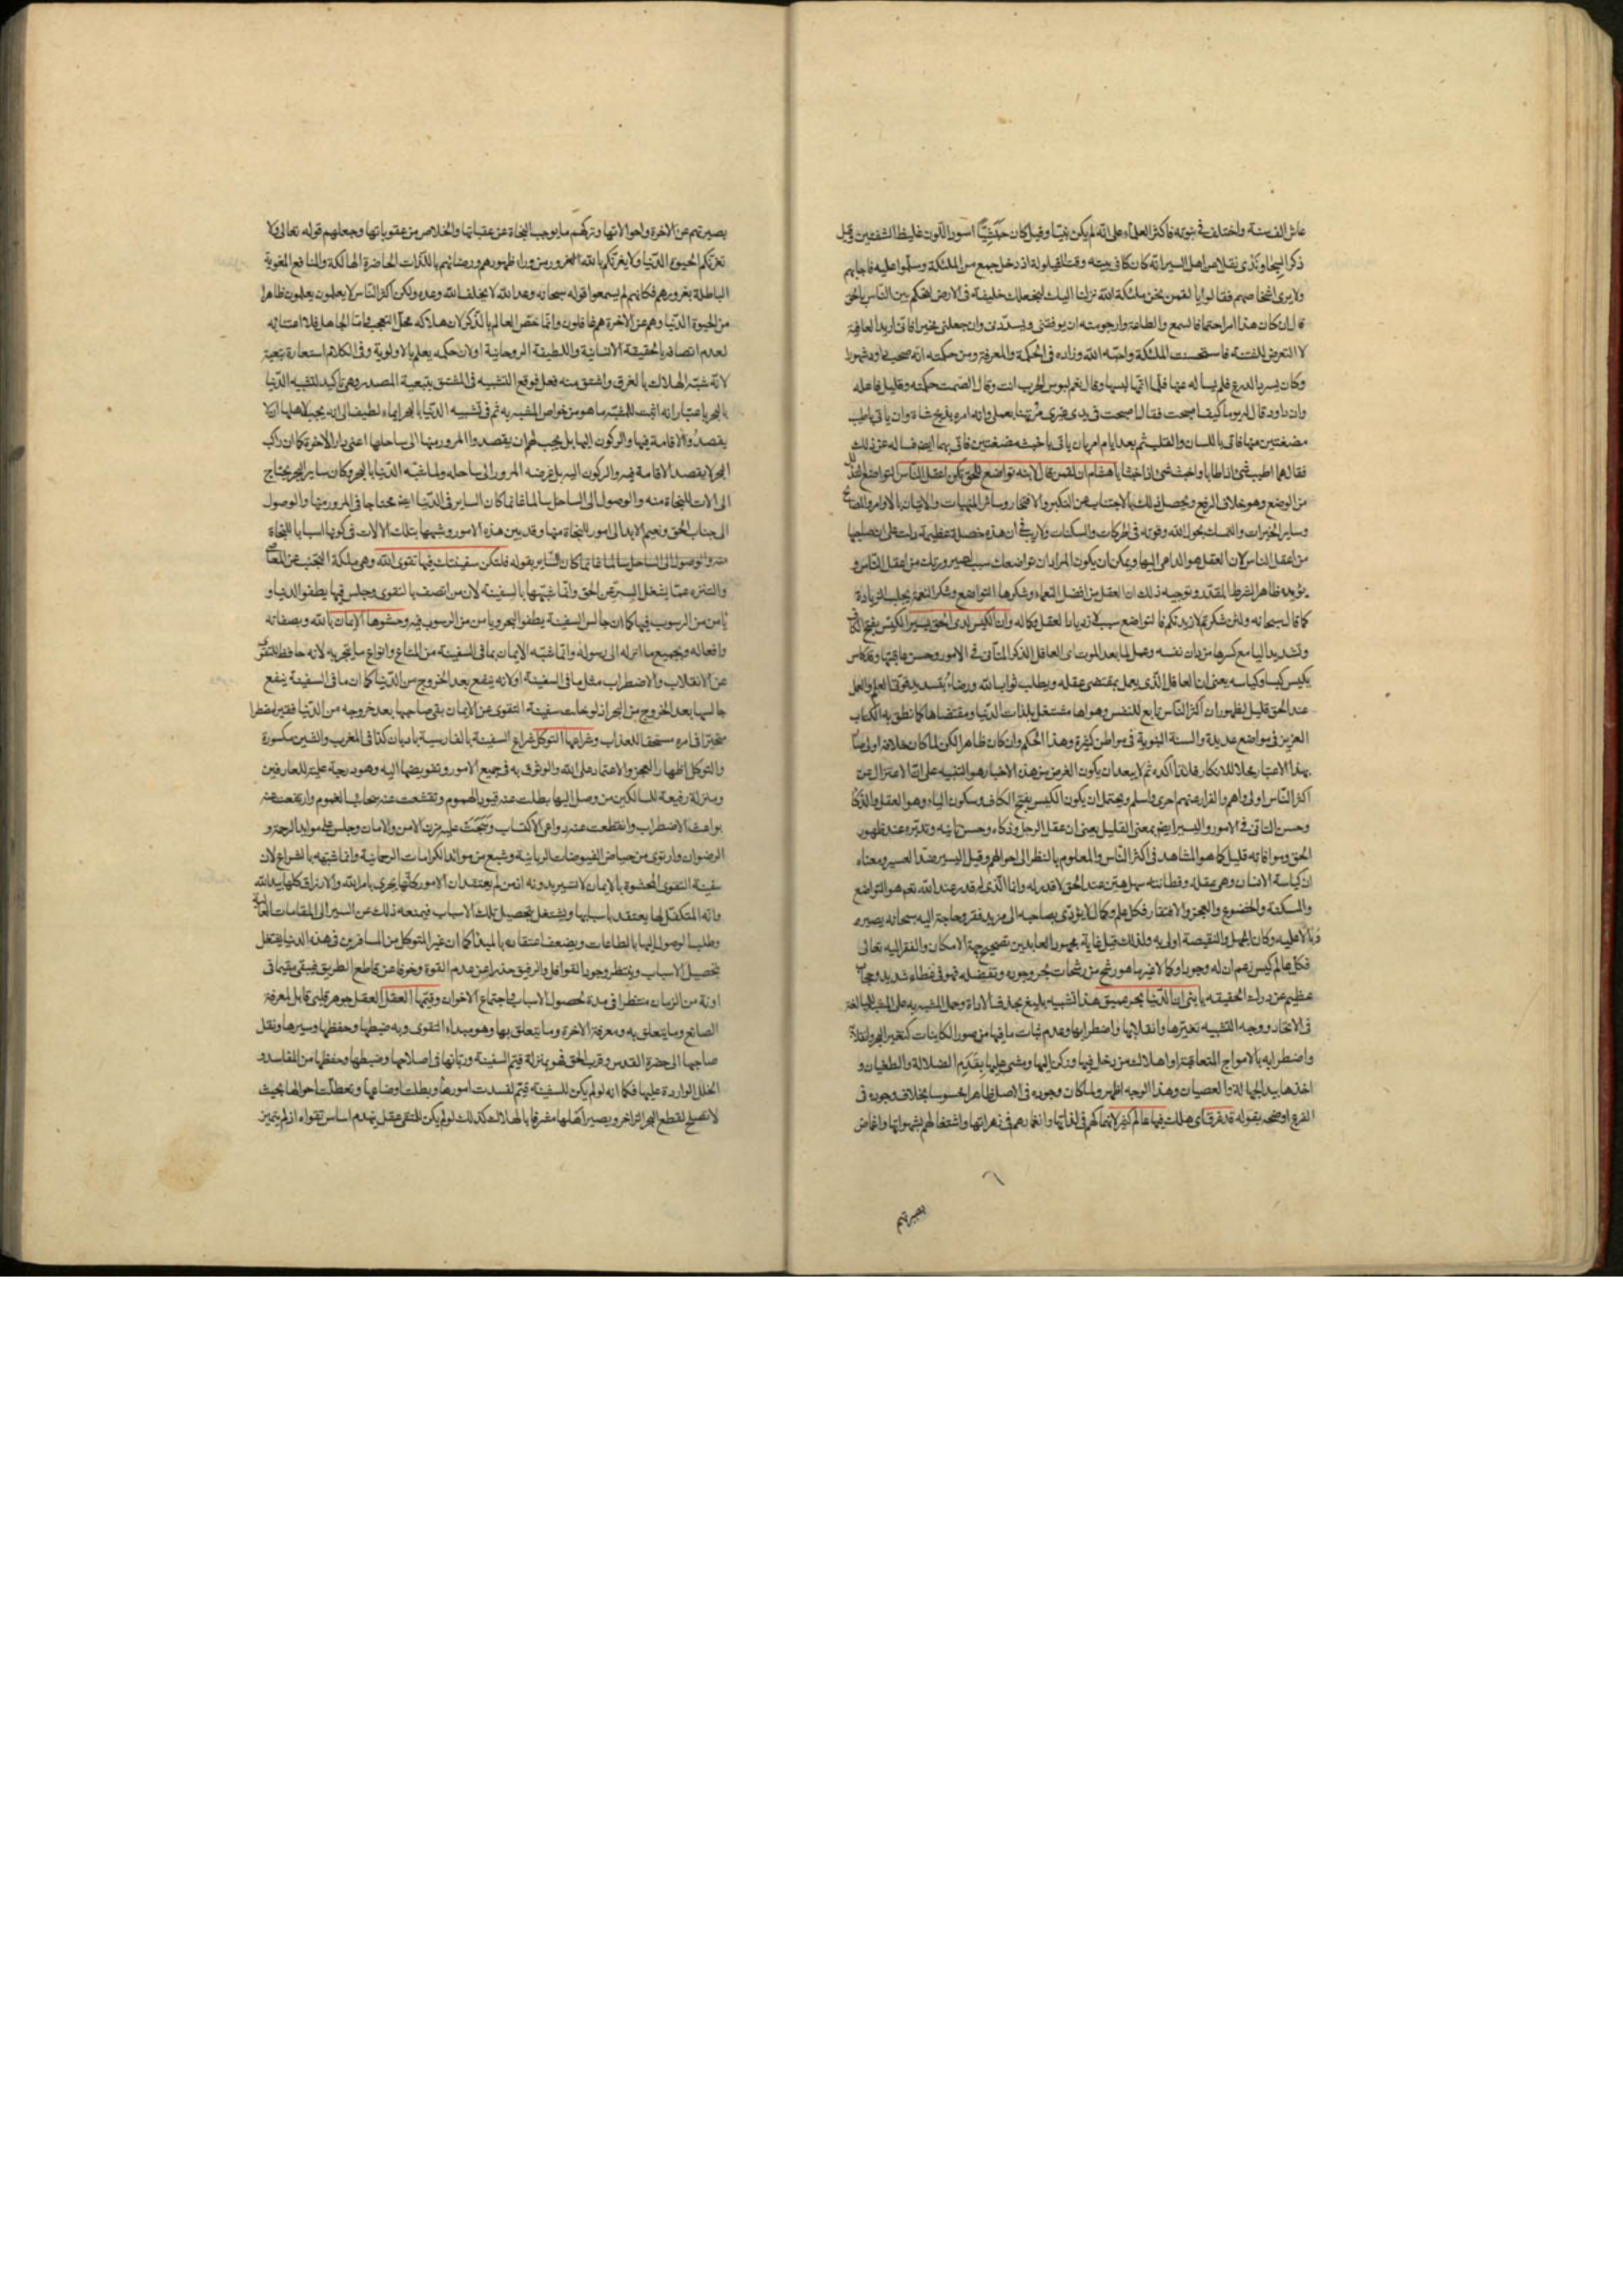 عاش الف سنة واختلف فى نبوته فاكثر العلماء على انه لم يكن نبيا وقيل كان حبشيا اسود اللون غليظ الشفتين وقيل
ذكر نقلا عن اهل السير انه كان فى بيته وقت القيلولة اذ دخل جمع من الملئكة وسلموا عليه فاجابهم
ولا يرى اشخاصهم فقالوا يا لقمن نحن ملئكة الله نزلنا اليك لنجعلك خليفة فى الارض لتحكم بين الناس بالحق
قال ان كان هذا امرا حتما فالسمع والطاعة وارجو منه ان يوفقنى ويسددنى وان جعلنى مخيرا فانى اريد العافية
لا التعرض للفتنة فاستحسنت الملئكة واحبه الله وزاده فى الحكمة والمعرفة ومن حكمته انه صحب داود شهورا
وكان يسرد الدرع فلم يساله عنها فلما اتمها لبسها وقال نعم لبوس الحرب انت وقال الصمت حكمة وقليل فاعله
وان داود قال له يوما كيف اصبحت فقال اصبحت فى يدى غيرى وانه امره بذبح شاة وان ياتى باطيب
مضغتين منها فاتى باللسان والقلب ثم بعد ايام امر بان ياتى باخبث مضغتين فاتى بهما ايضا فساله عن ذلك
فقال هما اطيب شئ اذا طابا واخبث شئ اذا خبثا يا هشام ان لقمن قال لابنه تواضع للحق تكن اعقل الناس التواضع
من الوضع وهو خلاف الرفع ويحصل ذلك بالاجتناب عن التكبر والافتخار وسائر المنهيات والاتيان بالاوامر
وساير الخيرات والتمسك بحول الله وقوته فى الحركات والسكنات ولا ريب فى ان هذه خصلة عظيمة دلت على ان صاحبها
من اعقل الناس لان العقل هو الداعى اليها ويمكن ان يكون المراد ان تواضعك سبب لصيرورتك من اعقل الناس و
يؤيده ظاهر الشرط المقدر وتوجيه ذلك ان العقل من افضل النعماء وشكرها التواضع وشكر النعمة يجلب الزيادة
كما قال سبحانه ولئن شكرتم لازيدنكم فالتواضع سبب لازدياد العقل وكماله وان الكيس لدى الحق يسير الكيس بفتح الكاف
وتشديد اليا مع كسرها من دان نفسه وعمل لما بعد الموت اى العاقل الذكى المتانى فى الامور وحسن عاقبتها وقد كاس
يكيس كيسا وكياسة يعنى ان العاقل الذى يعمل بمقتضى عقله ويطلب ثواب الله ورضاه العلم والعمل
عند الحق قليل لظهور ان اكثر الناس تابع للنفس وهواها مشتغل بلذات الدنيا ومقتضاها كما نطق به الكتاب
العزيز فى مواضع عديدة والسنة النبوية فى مواطن كثيرة وهذا الحكم وان كان ظاهرا لكن لما كان خلافه
بهذا الاعتبار محلا للانكار فلذا اكده ثم لا يبعد ان يكون الغرض من هذه الاخبار هو التنبيه على ان الاعتزال عن
اكثر الناس اولى واهم والفرار عنهم احرى واسلم ويحتمل ان يكون الكيس بفتح الكاف وسكون الياء وهو العقل والذكا
وحسن التانى فى الامور واليسير ايضا بمعنى القليل يعنى ان عقل الرجل وذكاءه وحسن تانيه وتدبره عند ظهور
الحق وموافاته قليل كما هو المشاهد فى اكثر الناس والمعلوم بالنظر الى احوالهم وقيل اليسير ضد العسير ومعناه
ان كياسة الانسان وهى عقله وفطانته سهل هين عند الحق لا قدر له وانما الذى له قدر عند الله تعم هو التواضع
والمسكنة والخضوع والعجز والافتقار فكل علم وكمال لا يؤدى بصاحبه الى مزيد فقر وحاجة اليه سبحانه يصير
وبالا عليه وكان الجهل والنقيصة اولى به ولذلك قيل غاية مجهود العابدين تصحيح جهة الامكان والفقر اليه تعالى
فكل عالم كيس زعم ان له وجودا وكمالا غير ما هو رشح من رشحات بحر وجوده وتفضله فهو فى غطاء شديد وحجاب
عظيم عن درك الحقيقة يا بنى ان الدنيا بحر عميق هذا تشبيه بليغ بحذف الاداة وحمل المشبه به على المشبه للمبالغة
فى الاتحاد ووجه التشبيه تغيرها وانقلابها واضطرابها وعدم ثبات ما فيها من صور الكاينات كتغير البحر وانقلابه
واضطرابه بالامواج المتعاقبة او اهلاك من دخل فيها وركن اليها ومشى عليها بقدم الضلالة والطغيان و
اخذها بيد الجهالة والعصيان وهذا الوجه اظهر ولما كان وجوده فى الاصل ظاهرا محسوسا بخلاف وجوده فى
الفرع اوضحه بقوله قد غرق اى هلك فيها عالم كثير لانهماكهم فى لذاتها وانغمارهم فى زهراتها واشتغالهم بشهواتها واغماض
بصيرتهم
بصيرتهم عن الاخرة واحوالاتها وتركهم ما يوجب النجاة عن عقباتها والخلاص من عقوباتها وجعلهم قوله تعالى فلا
تغرنكم الحيوة الدنيا ولا يغرنكم بالله الغرور من وراء ظهورهم ورضائهم باللذات الحاضرة الهالكة والمنافع المغوية
الباطلة بغرورهم فكانهم لم يسمعوا قوله سبحانه وعد الله لا يخلف الله وعده ولكن اكثر الناس لا يعلمون يعلمون ظاهرا
من الحيوة الدنيا وهم عن الاخرة هم غافلون وانما خص العالم بالذكر لان هلاكه محل التعجب واما الجاهل فلا اعتناء به
لعدم اتصافه بالحقيقة الانسانية واللطيفة الروحانية او لان حكمه يعلم بالاولوية وفى الكلام استعارة تبعية
لانه شبه الهلاك بالغرق واشتق منه فعل فوقع التشبيه فى المشتق بتبعية المصدر وهى تاكيد لتشبيه الدنيا
بالبحر باعتبار انه اثبت للمشبه ما هو من خواص المشبه به ثم فى تشبيه الدنيا بالبحر ايماء لطيف الى انه يجب لاهلها ان لا
يقصدوا الاقامة فيها والركون اليها بل يجب لهم ان يقصدوا المرور منها الى ساحلها اعنى دار الاخرة كما ان راكب
البحر لا يقصد الاقامة فيه والركون اليه بل غرضه المرور الى ساحله ولما شبه الدنيا بالبحر وكان ساير البحر يحتاج
الى الات للنجاة منه والوصول الى الساحل سالما غانما كان الساير فى الدنيا ايضا محتاجا فى المرور منها والوصول
الى جناب الحق ونعيم الابد الى امور للنجاة منها وقد بين هذه الامور وشبهها بتلك الالات فى كونها اسبابا للنجاة
والوصول الى الساحل سالما غانما بقوله فلتكن سفينتك فيها تقوى الله وهى ملكة التجنب عن المعاصى
والتنزه عما يشغل السر عن الحق وانما شبهها بالسفينة لان من اتصف بالتقوى وجلس فيها يطفو الدنيا و
يامن من الرسوب فيها كما ان جالس السفينة يطفو البحر ويامن من الرسوب فيه وحشوها الايمان بالله وبصفاته
وافعاله وبجميع ما انزله الى رسوله وانما شبه الايمان بما فى السفينة من المتاع وانواع ما يتجر به لانه حافظ للتقوى
عن الانقلاب والاضطراب مثل ما فى السفينة او لانه ينفع بعد الخروج من الدنيا كما ان ما فى السفينة ينفع
جالسها بعد الخروج من البحر اذ لو خلت سفينة التقوى عن الايمان بقى صاحبها بعد خروجه من الدنيا فقيرا مضطرا
متحيرا فى امره مستحقا للعذاب وشراعها التوكل شراع السفينة بالفارسية بادبان كذا فى المغرب والشين مكسورة
والتوكل اظهار العجز والاعتماد على الله والوثوق به فى جميع الامور وتفويضها اليه وهو درجة علية للعارفين
ومنزلة رفيعة للسالكين من وصل اليها بطلت عنه قيود الهموم وتقشعت عنه سحائب الغموم وارتفعت عنه
بواعث الاضطراب وانقطعت عنه دواعى الاكتساب عليه مزن الامن والامان وجلس على موايد الرحمة و
الرضوان وارتوى من حياض الفيوضات الربانية وشبع من موائد الكرامات الرحمانية وانما شبهه بالشراع لان
سفينة التقوى المحشوة بالايمان لا تسير بدونه اذ من لم يعتقد ان الامور كلها تجرى بامر الله والارزاق كلها بيد الله
وانه المتكفل لها يعتقد باسبابها ويشتغل بتحصيل تلك الاسباب فيمنعه ذلك عن السير الى المقامات العالية
وطلب الوصول اليها بالطاعات ويضعف اعتقاده بالمبدأ كما ان غير المتوكل من المسافرين فى هذه الدنيا يشتغل
بتحصيل الاسباب وينتظر وجود القوافل والرفيق حذرا عن عدم القوة وخوفا عن قاطع الطريق فيبقى مقيما فى
اونة من الزمان منتظرا فى مدة لحصول الاسباب واجتماع الاخوان وقيمها العقل العقل جوهر قلبى قابل لمعرفة
الصانع وما يتعلق به ومعرفة الاخرة وما يتعلق بها وهو مبداء التقوى وبه ضبطها وحفظها وسيرها ونقل
صاحبها الى حضرة القدس وقرب الحق فهو بمنزلة قيم السفينة وربانها فى اصلاحها وضبطها وحفظها من المفاسد و
الخلل الواردة عليها فكما انه لو لم يكن للسفينة قيم لفسدت امورها وبطلت اوضاعها وتعطلت احوالها بحيث
لا تصلح لقطع البحر الزاخر ويصير اهلها مشرفا بالهلاك كذلك لو لم يكن للمتقى عقل ينهدم اساس تقواه اذ لم يتميز